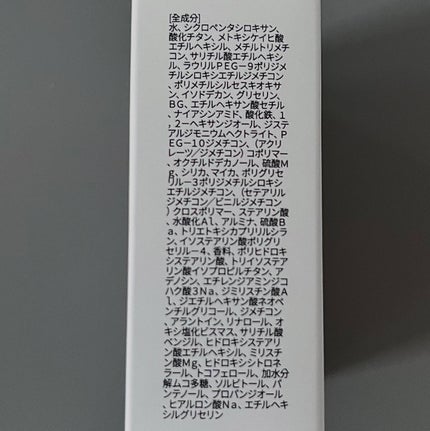 [全成分]
水、シクロペンタシロキサン、
酸化チタン、メトキシケイヒ酸
エチルヘキシル、メチルトリメチ
コン、サリチル酸エチルヘキシ
ル、ラウリルPEG－9ポリジメ
チルシロキシエチルジメチコン
、ポリメチルシルセスキオキサ
ン、イソドデカン、グリセリン、
BG、エチルヘキサン酸セチル
、ナイアシンアミド、酸化鉄、1
，2－ヘキサンジオール、ジステ
アルジモニウムヘクトライト、P
EG－10ジメチコン、(アクリ
レーツ/ジメチコン)コポリマー
、オクチルドデカノール、硫酸M
g、シリカ、マイカ、ポリグリセ
リル－3ポリジメチルシロキシ
エチルジメチコン、(セテアリル
ジメチコン/ビニルジメチコン
)クロスポリマー、ステアリン酸
、水酸化Al、アルミナ、硫酸B
a、トリエトキシカプリリルシラ
ン、イソステアリン酸ポリグリ
セリル－4、香料、ポリヒドロキ
システアリン酸、トリイソステア
リン酸イソプロピルチタン、ア
デノシン、エチレンジアミンジコ
ハク酸3Na、ジミリスチン酸A
l、ジエチルヘキサン酸ネオペ
ンチルグリコール、ジメチコン
、アラントイン、リナロール、オ
キシ塩化ビスマス、サリチル酸
ベンジル、ヒドロキシステアリ
ン酸エチルヘキシル、ミリスチ
ン酸Mg、ヒドロキシシトロネ
ラール、トコフェロール、加水分
解ムコ多糖、ソルビトール、パ
ンテノール、プロパンジオール
、ヒアルロン酸Na、エチルヘキ
シルグリセリン